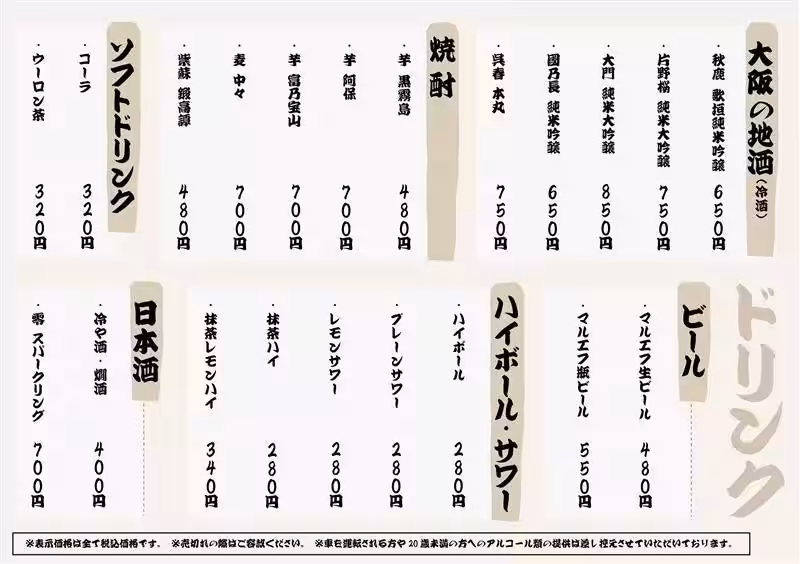 大阪の地酒(冷酒)
・秋鹿 歌垣純米吟醸 650円
・片野桜 純米大吟醸 750円
・大門 純米大吟醸 850円
・國乃長 純米吟醸 650円
・呉春 本丸 750円
焼酎
・芋 黒霧島 480円
・芋 阿保 700円
・芋 富乃宝山 700円
・麦 中々 700円
・紫蘇 鍛高譚 480円
ソフトドリンク
・コーラ 320円
・ウーロン茶 320円
ドリンク
ビール
・マルエフ生ビール 480円
・マルエフ瓶ビール 550円
ハイボール・サワー
・ハイボール 280円
・プレーンサワー 280円
・レモンサワー 280円
・抹茶ハイ 280円
・抹茶レモンハイ 340円
日本酒
・冷や酒・燗酒 400円
・零 スパークリング 700円
※表示価格は全て税込価格です。 ※売切れの際はご容赦ください。 ※車を運転される方や20歳未満の方へのアルコール類の提供は差し控えさせていただいております。